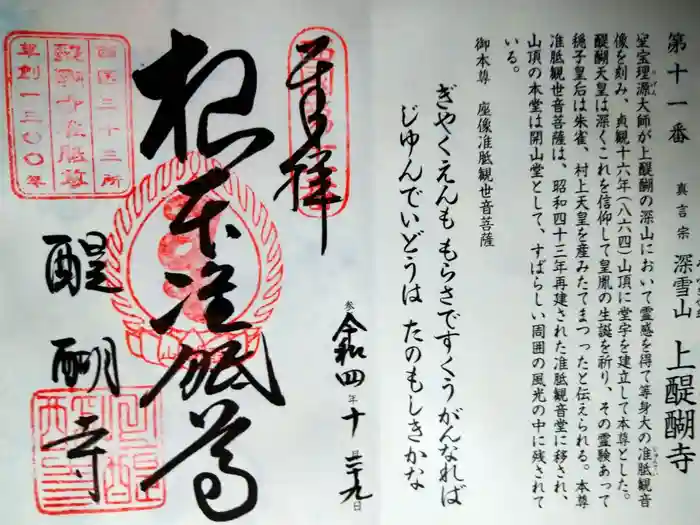 第十一番 真言宗 深雪山 上醍醐寺
聖宝理源大師が上醍醐の深山において霊感を得て等身大の准胝観音
像を刻み、貞観十六年(八六四)山頂に堂宇を建立して本尊とした。
醍醐天皇は深くこれを信仰して皇胤の生誕を祈り、その霊験あって
穏子皇后は朱雀、村上天皇を産みたてまつったと伝えられる。本尊
准胝観世音菩薩は、昭和四十三年再建された准胝観音堂に移され、
山頂の本堂は開山堂として、すばらしい周囲の風光の中に残されて
いる。
御本尊 座像准胝観世音菩薩
ぎやくえんも もらさですくう がんなれば
じゅんでいどうは たのもしきかな
奉拝
参 令和四年十月二十九日
根本准胝尊
醍醐寺
西国三十三所
草創一三〇〇年